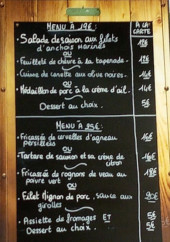 MENU À 19€ :
À LA CARTE
- Salade de saison aux filets
d'anchois marinés
OU
- Feuilleté de chèvre à la tapenade.
- Cuisse de canette aux olives noires.
OU
- Médaillon de porc à la crème d'ail.
Dessert au choix.
5€
MENU À 25€ :
- Fricassée de cervelles d'agneau
persillées
OU
- Tartare de saumon et sa crème de
citron
- Fricassée de rognons de veau au
poivre vert
OU
- Filet Mignon de porc, sauce aux
girolles
- Assiette de fromages ET
Dessert au choix.
5€
5€